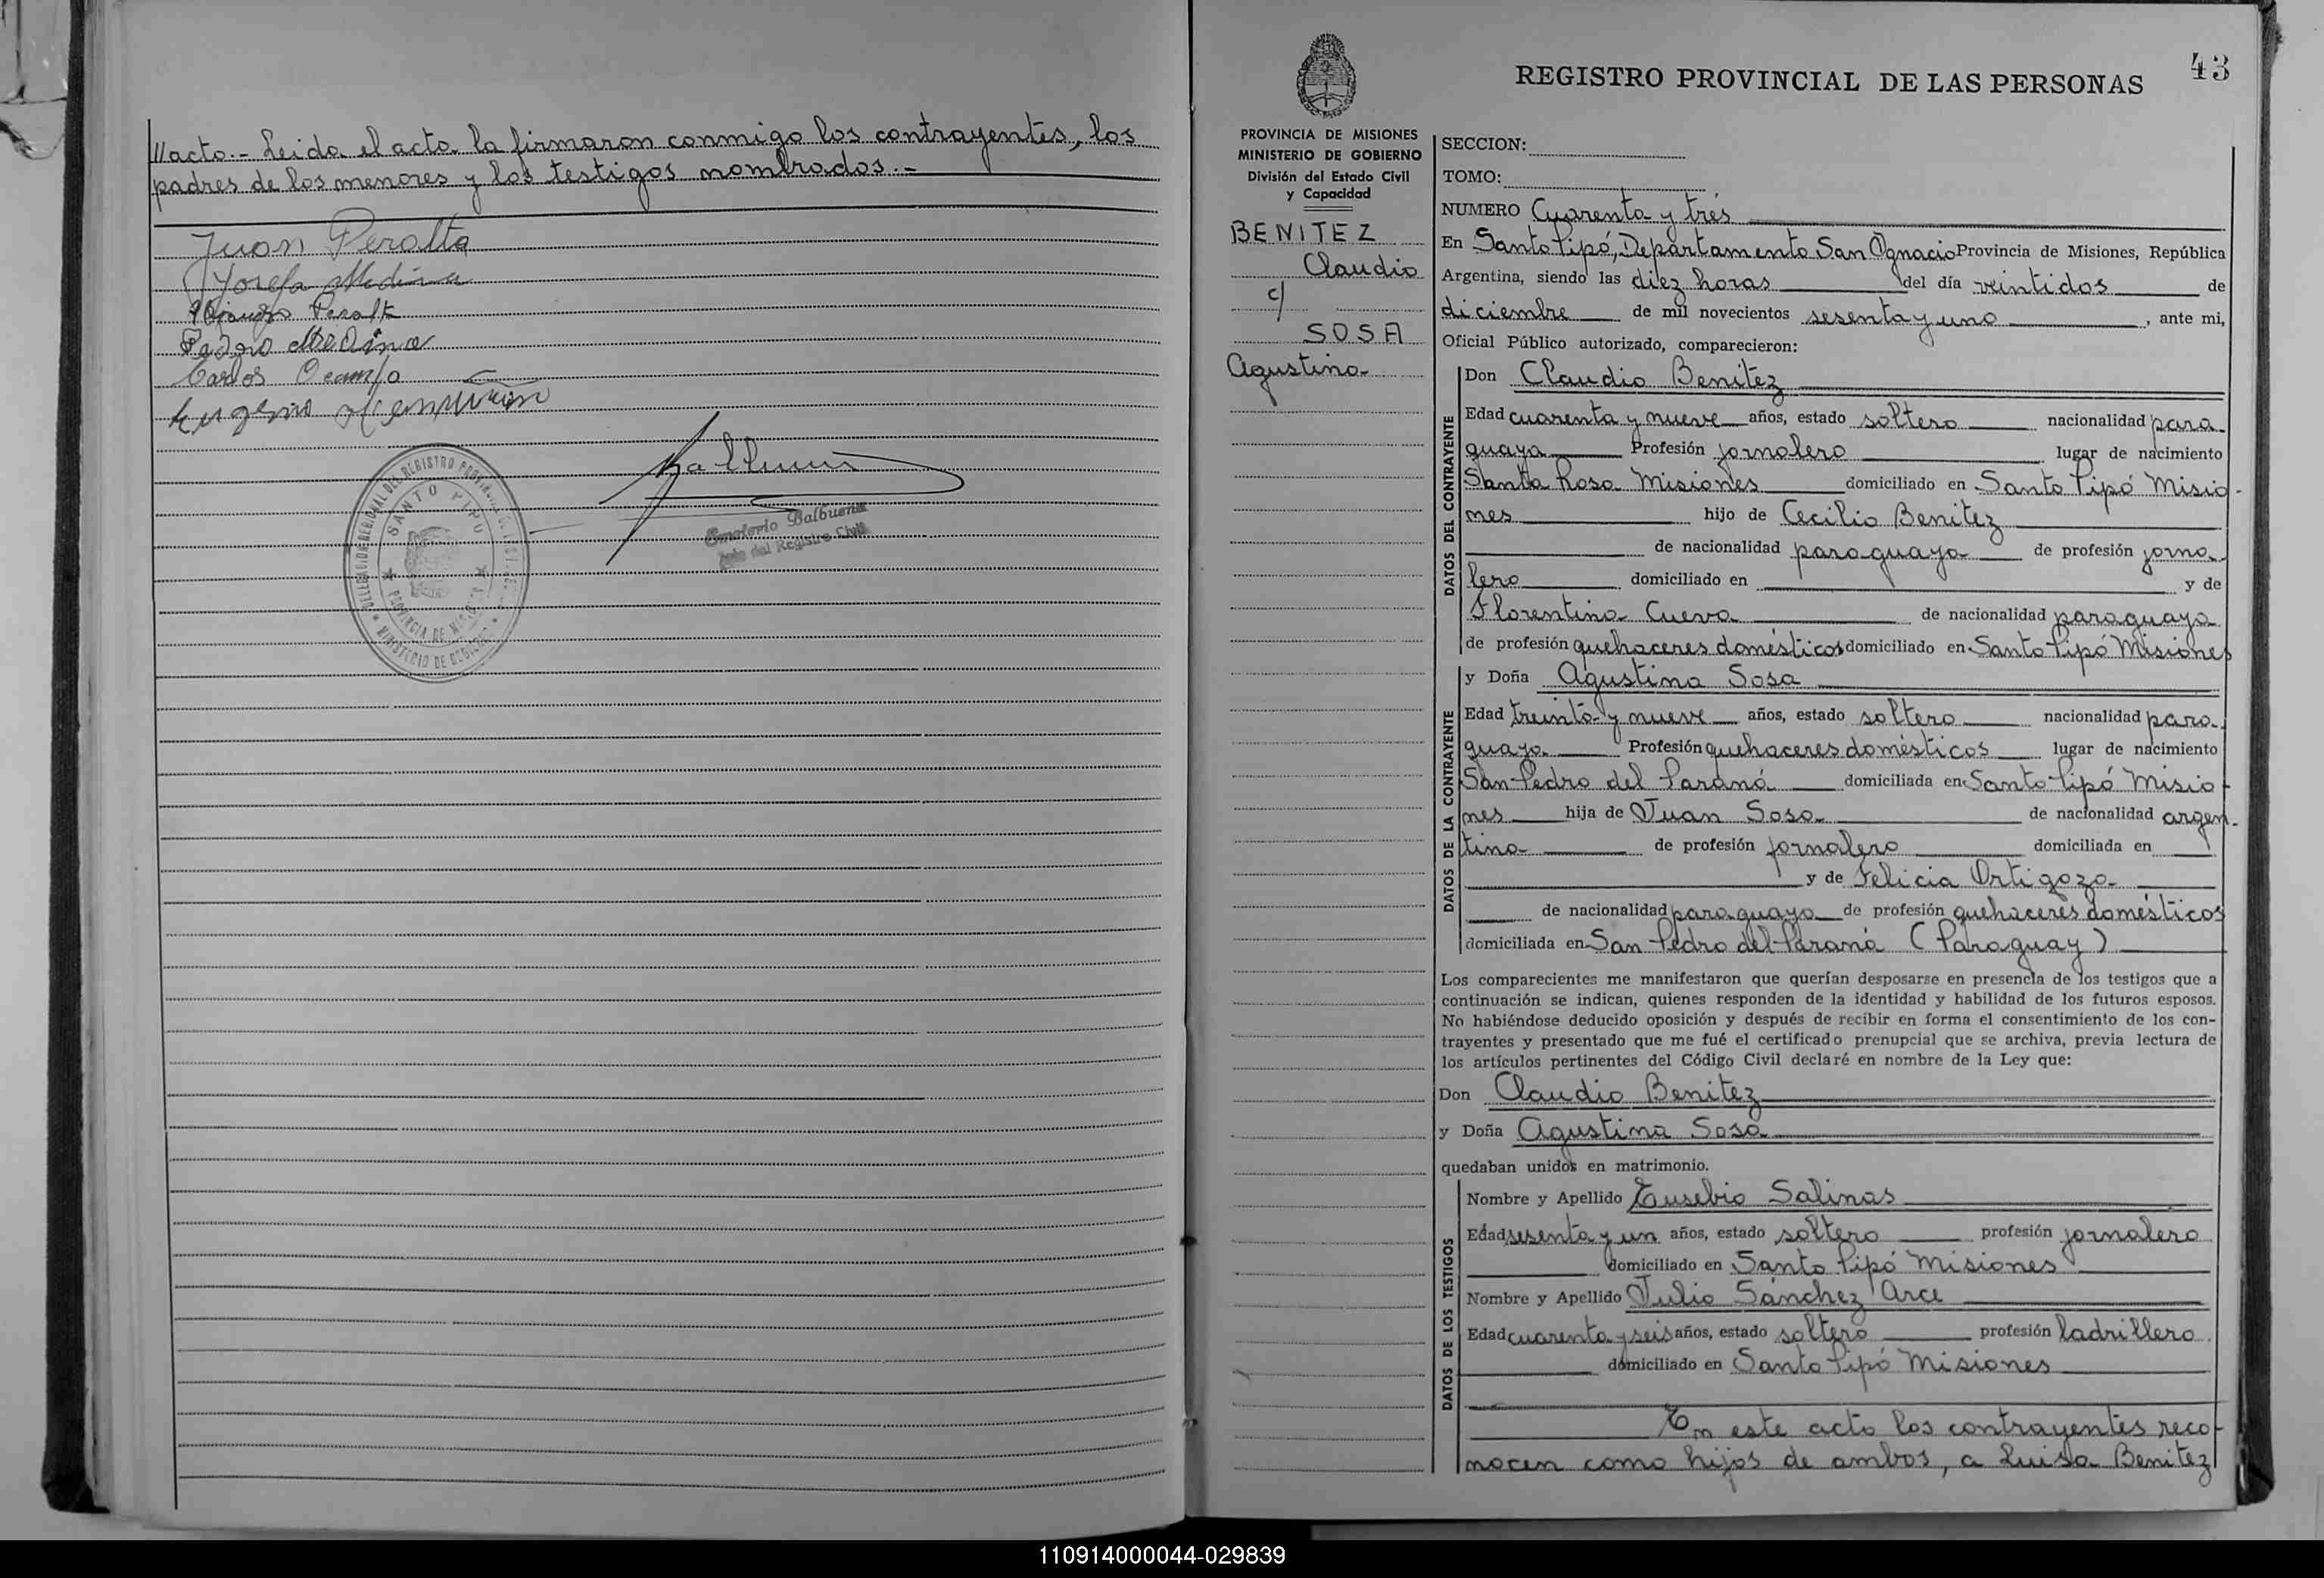 //acto.- Leida el acta la firmaron conmigo los contrayentes, los
padres de los menores y los testigos nombrados.-
Juan Peralta
Yosefa Medina
Peralta
Pedro Medina
Carlos Ocampo
Eugenio
DELEGACION REGIONAL DEL REGISTRO PROVINCIAL DE LAS PERSONAS
SANTO PIPO
PROVINCIA DE MISIONES
MINISTERIO DE GOBIERNO
Balbuena
Emeterio Balbuena
Jefe del Registro Civil
43
REGISTRO PROVINCIAL DE LAS PERSONAS
PROVINCIA DE MISIONES
MINISTERIO DE GOBIERNO
División del Estado Civil
y Capacidad
BENITEZ
Claudio
c/
SOSA
Agustina
SECCION:
TOMO:
NUMERO Cuarenta y trés
En Santo Pipó, Departamento San Ignacio Provincia de Misiones, República
Argentina, siendo las diez horas del día veintidos de
diciembre de mil novecientos sesenta y uno, ante mi,
Oficial Público autorizado, comparecieron:
DATOS DEL CONTRAYENTE
Don Claudio Benitez
Edad cuarenta y nueve años, estado soltero nacionalidad para-
guaya Profesión jornalero lugar de nacimiento
Santa Rosa Misiones domiciliado en Santo Pipó Misio-
nes hijo de Cecilio Benitez
de nacionalidad paraguaya de profesión jorna-
lero domiciliado en y de
Florentina Cueva de nacionalidad paraguaya
de profesión quehaceres domésticos domiciliado en Santo Pipó Misiones
DATOS DE LA CONTRAYENTE
y Doña Agustina Sosa
Edad treinta y nueve años, estado soltera nacionalidad para-
guaya Profesión quehaceres domésticos lugar de nacimiento
San Pedro del Paraná domiciliada en Santo Pipó Misio-
nes hija de Juan Sosa de nacionalidad argen-
tina de profesión jornalero domiciliada en
y de Felicia Ortigoza
de nacionalidad paraguaya de profesión quehaceres domésticos
domiciliada en San Pedro del Paraná (Paraguay)
Los comparecientes me manifestaron que querían desposarse en presencia de los testigos que a
continuación se indican, quienes responden de la identidad y habilidad de los futuros esposos.
No habiéndose deducido oposición y después de recibir en forma el consentimiento de los con-
trayentes y presentado que me fué el certificado prenupcial que se archiva, previa lectura de
los artículos pertinentes del Código Civil declaré en nombre de la Ley que:
Don Claudio Benitez
y Doña Agustina Sosa
quedaban unidos en matrimonio.
DATOS DE LOS TESTIGOS
Nombre y Apellido Eusebio Salinas
Edad sesenta y un años, estado soltero profesión jornalero
domiciliado en Santo Pipó Misiones
Nombre y Apellido Julio Sánchez Arce
Edad cuarenta y seis años, estado soltero profesión ladrillero
domiciliado en Santo Pipó Misiones
En este acto los contrayentes reco-
nocen como hijos de ambos, a Luisa Benitez
110914000044-029839